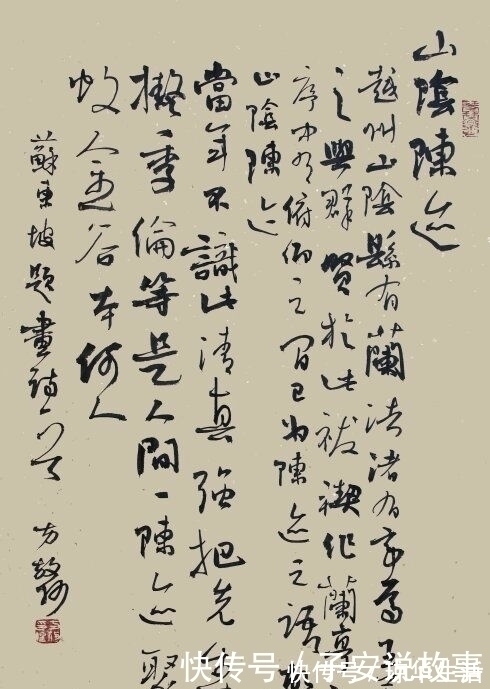 山陰陳迹
越州山陰縣有蘭渚渚有亭焉
之興群賢於此祓禊作蘭亭
序中有俯仰之間已為陳迹之語
山陰陳迹
當年不識此清真強把先
擬季倫等是人間一陳迹聚
蚊金谷本何人
蘇東坡題畫詩一首 方
快传号 / 子安说故事